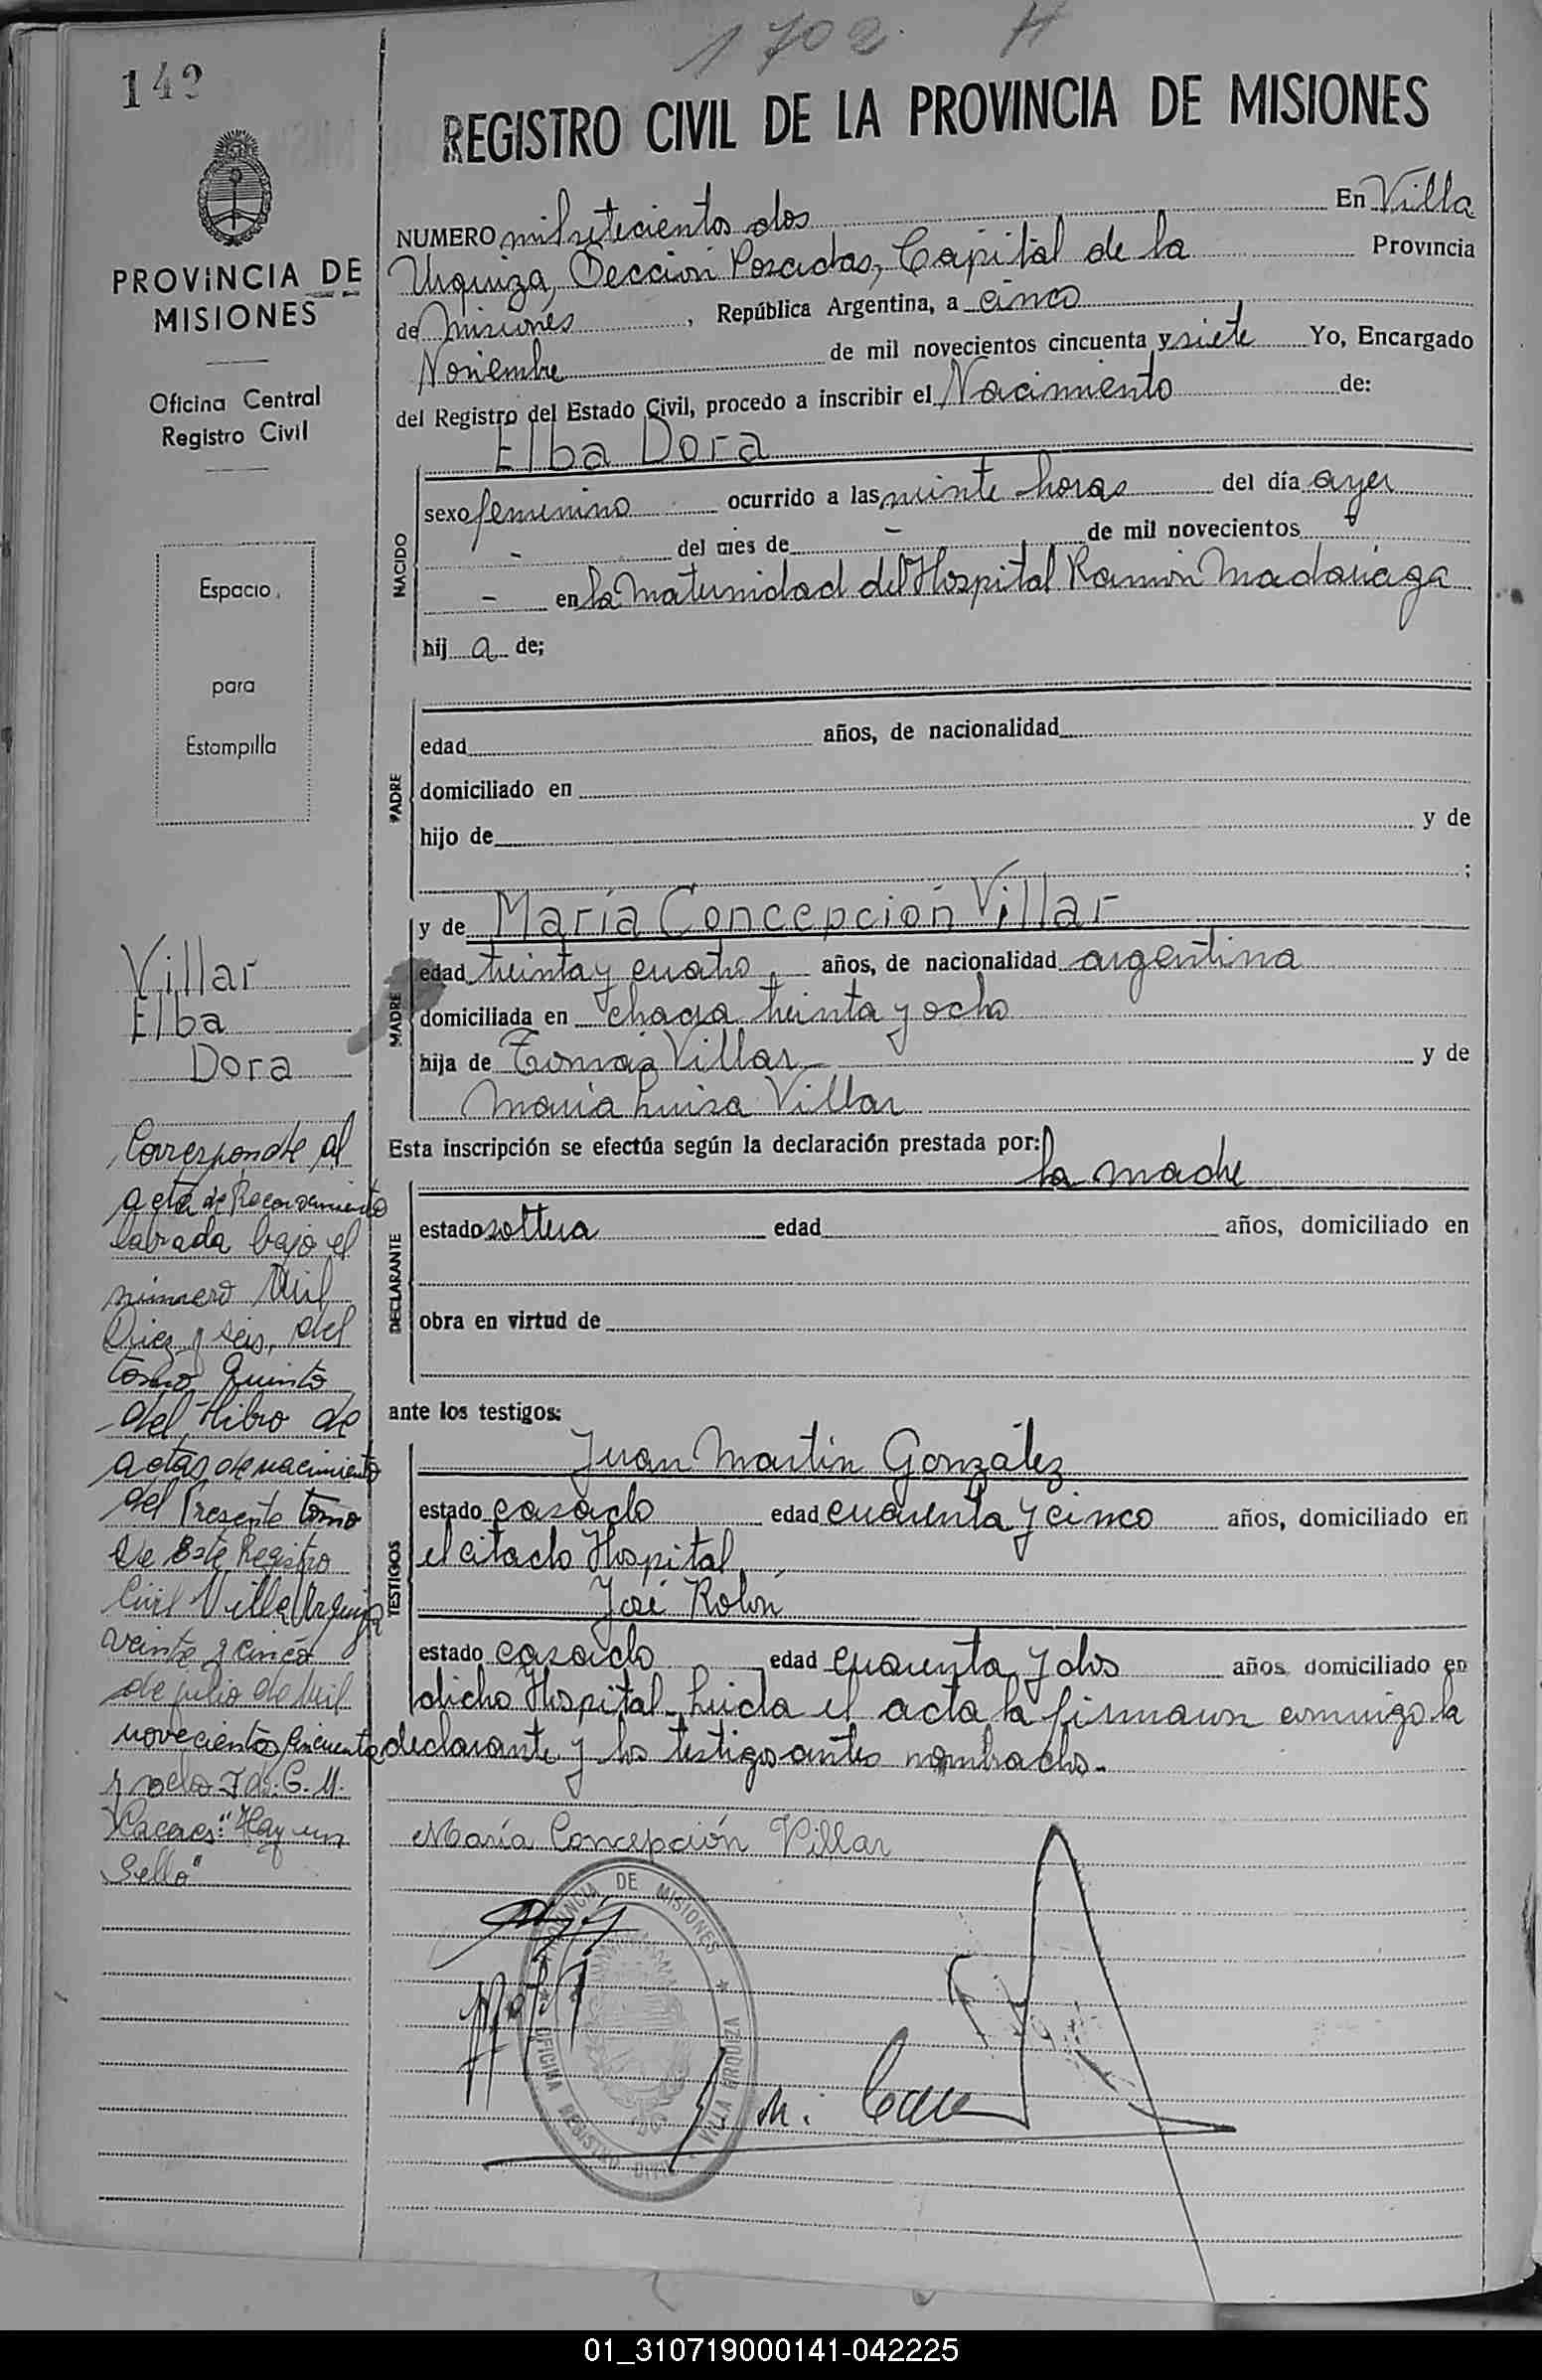 1702. H
142
REGISTRO CIVIL DE LA PROVINCIA DE MISIONES
PROVINCIA DE
MISIONES
Oficina Central
Registro Civil
Espacio
para
Estampilla
Villar
Elba
Dora
Corresponde al
acta de Reconocimiento
labrada bajo el
número Mil
Diez y seis, del
tomo quinto
del libro de
actas de nacimiento
del Presente tomo
de Este Registro
Civil Villa Urquiza
veinte y cinco
de julio de Mil
novecientos cincuenta
y ocho G. M.
Caceres: "Hay un
Sello"
NUMERO mil setecientos dos En Villa
Urquiza, Sección Posadas, Capital de la Provincia
de Misiones, República Argentina, a cinco
Noviembre de mil novecientos cincuenta y siete Yo, Encargado
del Registro del Estado Civil, procedo a inscribir el Nacimiento de:
Elba Dora
NACIDO
sexo femenino ocurrido a las veinte horas del día ayer
- del mes de - de mil novecientos
- en la Maternidad del Hospital Ramón Madariaga
hij a de;
PADRE
edad años, de nacionalidad
domiciliado en
hijo de y de
;
MADRE
y de María Concepción Villar
edad treinta y cuatro años, de nacionalidad argentina
domiciliada en chacra treinta y ocho
hija de Tomás Villar y de
María Luisa Villar
Esta inscripción se efectúa según la declaración prestada por:
la madre
DECLARANTE
estado soltera edad años, domiciliado en
obra en virtud de
ante los testigos:
TESTIGOS
Juan Martín González
estado casado edad cuarenta y cinco años, domiciliado en
el citado Hospital
José Rolón
estado casado edad cuarenta y dos años domiciliado en
dicho Hospital. Leida el acta la firmaron conmigo la
declarante y los testigos antes nombrados.-
María Concepción Villar
PROVINCIA DE MISIONES
OFICINA REGISTRO CIVIL VILLA URQUIZA
01_310719000141-042225